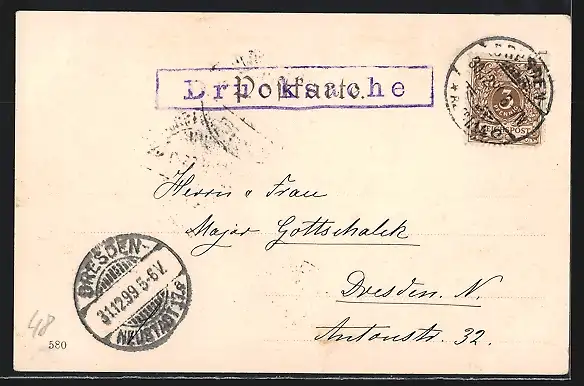 Drucksache
Postkarte.
DRESDEN
3
REICHSPOST
Herrn u Frau
Major Gottschalck
Dresden. N.
Antonstr. 32.
DRESDEN-
31.12.99. 5-6V.
NEUSTADT 1.
48
580